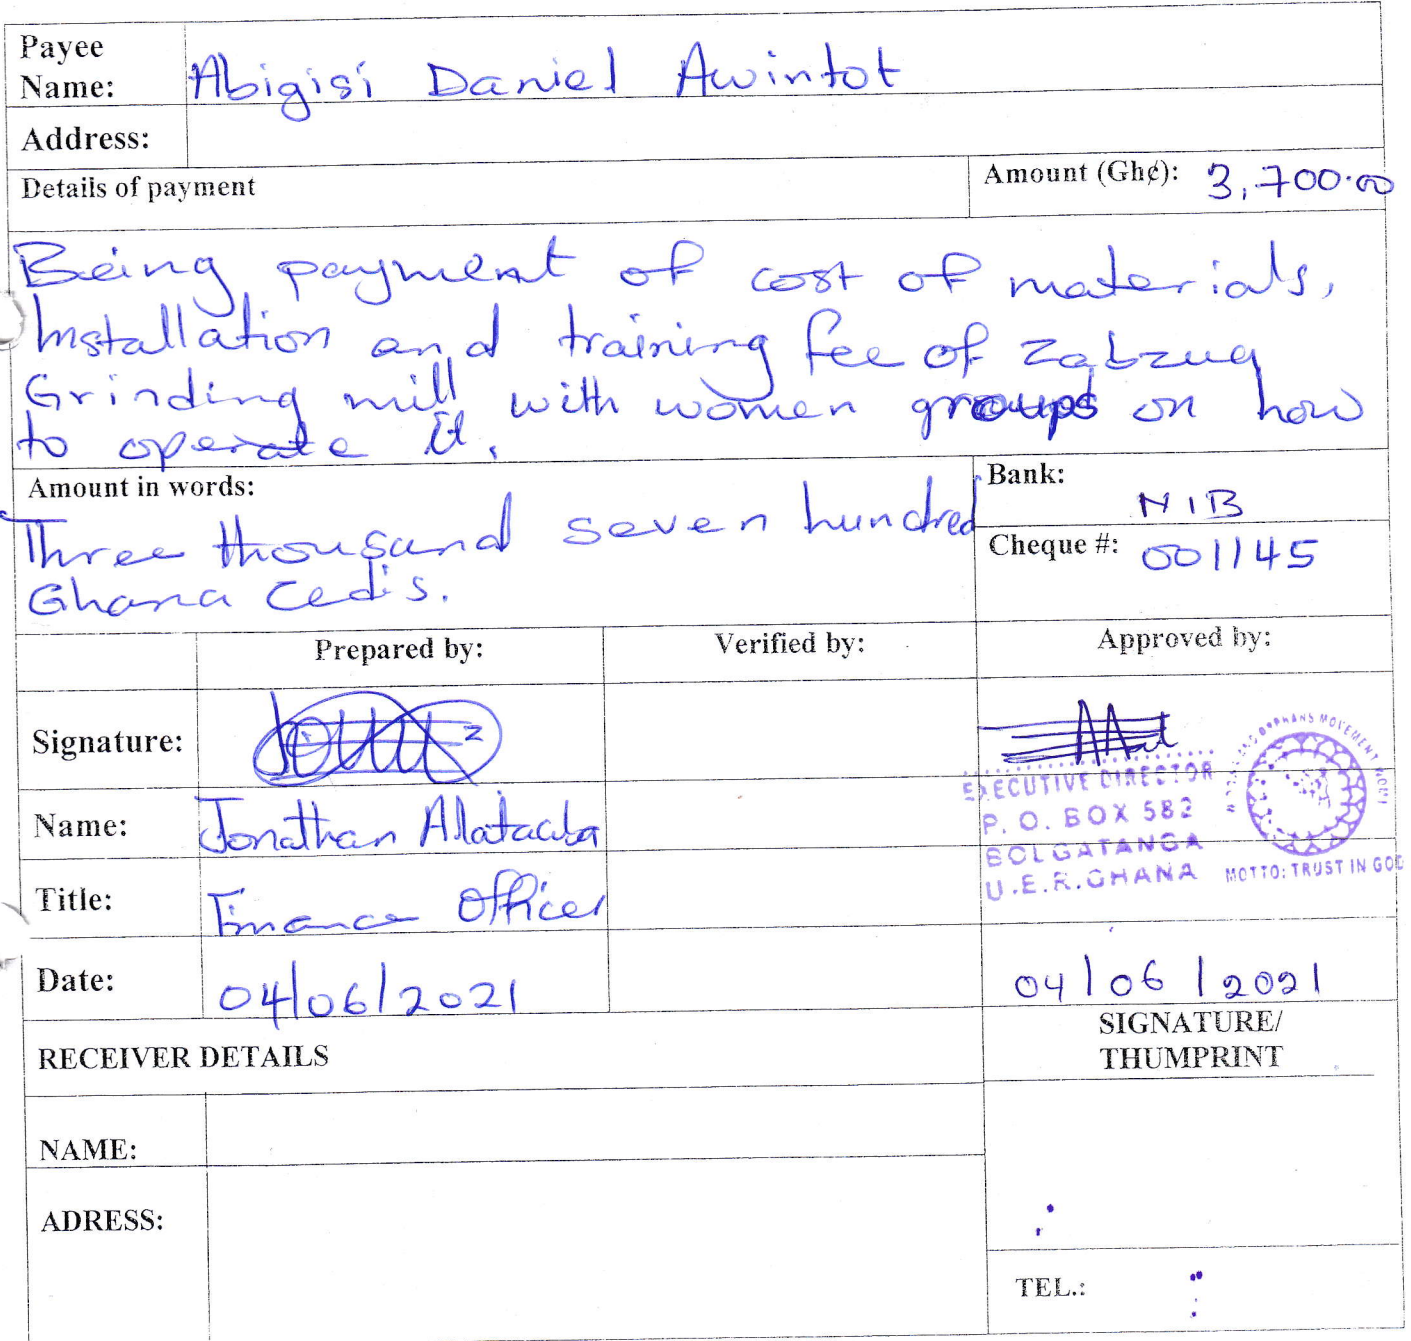 Payee
Name: Abigisi Daniel Awintot
Address:
Details of payment
Amount (Gh¢): 3,700.00
Being payment of cost of materials,
Installation and training fee of Zabzug
Grinding mill with women groups on how
to operate it.
Amount in words:
Three thousand seven hundred
Ghana Cedis.
Bank: NIB
Cheque #: 001145
Prepared by: Verified by: Approved by:
Signature:
EXECUTIVE DIRECTOR
P. O. BOX 582
BOLGATANGA
U.E.R. GHANA
ORPHANS MOVEMENT
MOTTO: TRUST IN GOD
Name: Jonathan Alataaba
Title: Finance Officer
Date: 04/06/2021 04/06/2021
RECEIVER DETAILS
SIGNATURE/
THUMPRINT
NAME:
ADRESS:
TEL.: